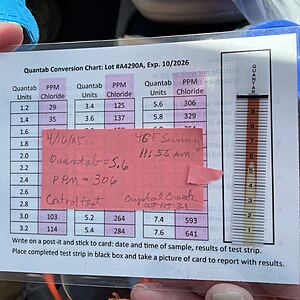 Quantab Conversion Chart: Lot #A4290A, Exp. 10/2026
Quantab Units PPM Chloride Quantab Units PPM Chloride Quantab Units PPM Chloride
1.2 29 3.4 125 5.6 306
1.4 35 3.6 137 5.8 329
4/16/25 46°F Sunny
11:55 Am
Quantab = 5.6
PPM = 306
Control test Crystal Creek
at Rt 31
3.0 103 5.2 264 7.4 593
3.2 114 5.4 284 7.6 641
Write on a post-it and stick to card: date and time of sample, results of test strip.
Place completed test strip in black box and take a picture of card to report with results.
QUANTAB
9
8
7
6
5
4
3
2
1